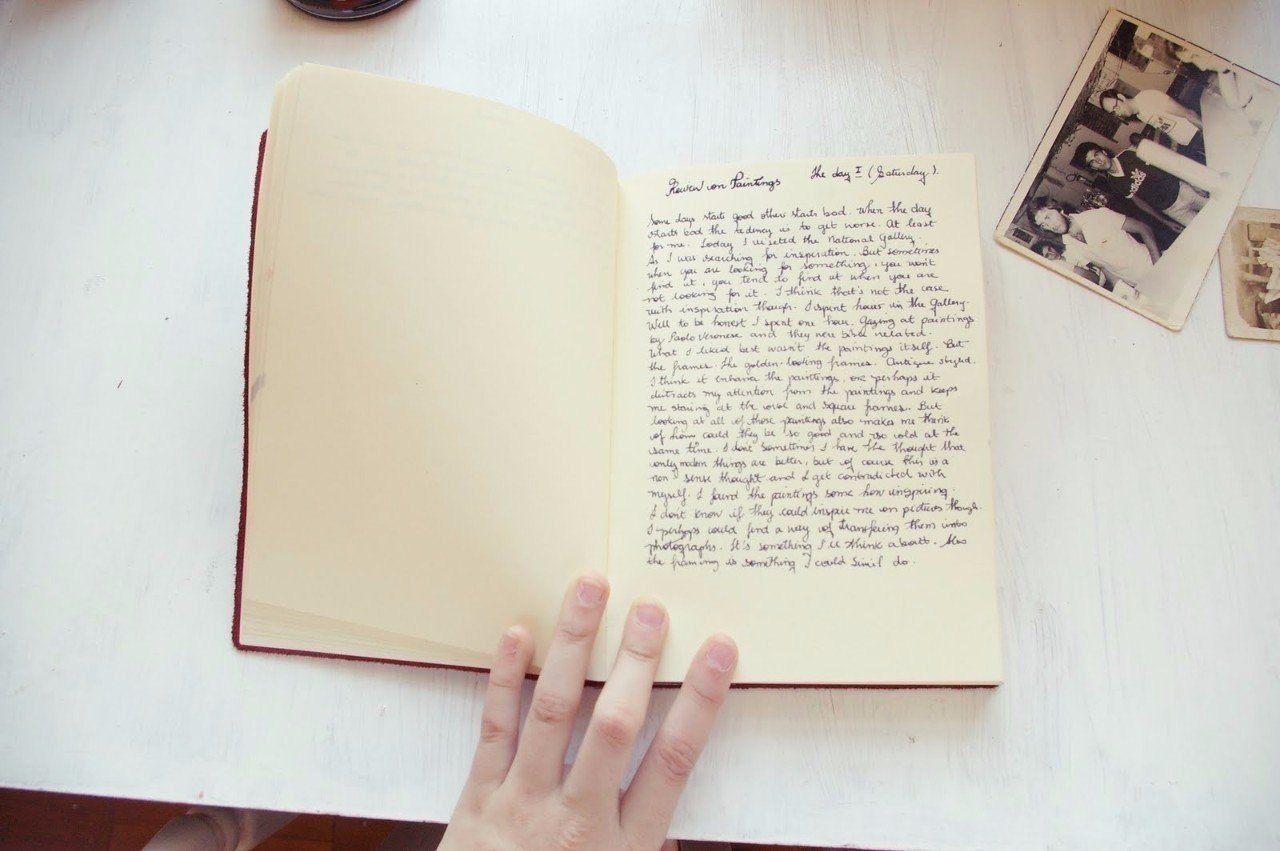 Review on Paintings The day I (Saturday).
Some days starts good others starts bad. When the day
starts bad the tedincy is to get worse. At least
for me. Today I viseted the National Gallery.
As I was searching for inspiration. But sometimes
when you are looking for something, you won't
find it, you tend to find at when you are
not looking for it. I think that's not the case
with inspiration though. I spent hour in the Gallery.
Well to be honest I spent one hour. Gazing at paintings
by Paolo Veronese and they were bible related.
What I liked best wasn't the paintings itself. But
the frames. The golden-looking frames. Antique styled.
I think it enhance the paintings, or perhaps it
distracts my attention from the paintings and keeps
me staring at the and square frames. But
looking at all of those paintings also makes me think
of how could they be so good and so old at the
same time. I don't sometimes I have the thought that
only modern things are better, but of course this is a
non-sense thought and I get contradicted with
myself. I found the paintings some how inspiring.
I don't know if they could inspire me on pictures though.
I perhaps could find a way of transfering them into
photographs. It's something I'll think about. Also
the framing is something I could do.